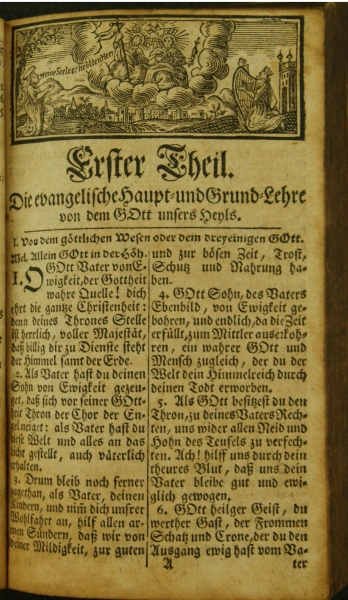 Erster Theil.
Die evangelische Haupt- und Grund-Lehre
von dem GOtt unsers Heyls.
I. Von dem göttlichen Wesen oder dem dreyeinigen GOtt.
Mel. Allein GOtt in der Höh.
1. O GOtt Vater von E-
wigkeit, der Gottheit
wahre Quelle! dich
ehrt die gantze Christenheit:
denn deines Thrones Stelle
ist herrlich, voller Majestät,
daß billig dir zu Dienste steht
der Himmel samt der Erde.
2. Als Vater hast du deinen
Sohn von Ewigkeit gezeu-
get, daß sich vor seiner GOtt-
heit Thron der Chor der En-
gel neiget: als Vater hast du
diese Welt und alles an das
Licht gestellt, auch väterlich
erhalten.
3. Drum bleib noch ferner
zugethan, als Vater, deinen
Kindern, und nim dich unsrer
Wohlfahrt an, hilf allen ar-
men Sündern, daß wir von
deiner Mildigkeit, zur guten
und zur bösen Zeit, Trost,
Schutz und Nahrung ha-
ben.
4. GOtt Sohn, des Vaters
Ebenbild, von Ewigkeit ge-
bohren, und endlich, da die Zeit
erfüllt, zum Mittler auserkoh-
ren, ein wahrer GOtt und
Mensch zugleich, der du der
Welt dein Himmelreich durch
deinen Todt erworben.
5. Als GOtt besitzest du den
Thron, zu deines Vaters Rech-
ten, uns wider allen Neid und
Hohn des Teufels zu verfech-
ten. Ach! hilff uns durch dein
theures Blut, daß uns dein
Vater bleibe gut und ewi-
glich gewogen.
6. GOtt heilger Geist, du
werther Gast, der Frommen
Schatz und Crone, der du den
Ausgang ewig hast vom Va-
A ter